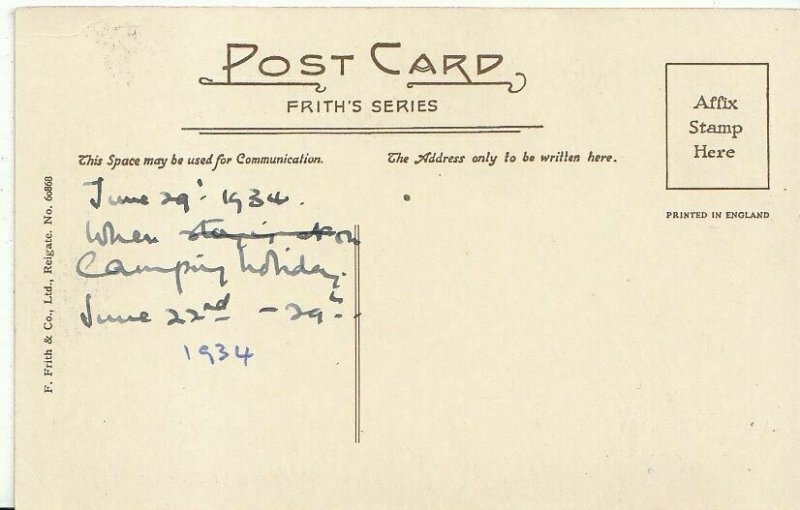 POST CARD
FRITH'S SERIES
This Space may be used for Communication.
The Address only to be written here.
Affix
Stamp
Here
PRINTED IN ENGLAND
F. Frith & Co., Ltd., Reigate. No. 60868
June 29th 1934.
When staying at on
Camping holiday.
June 22nd - 29th
1934